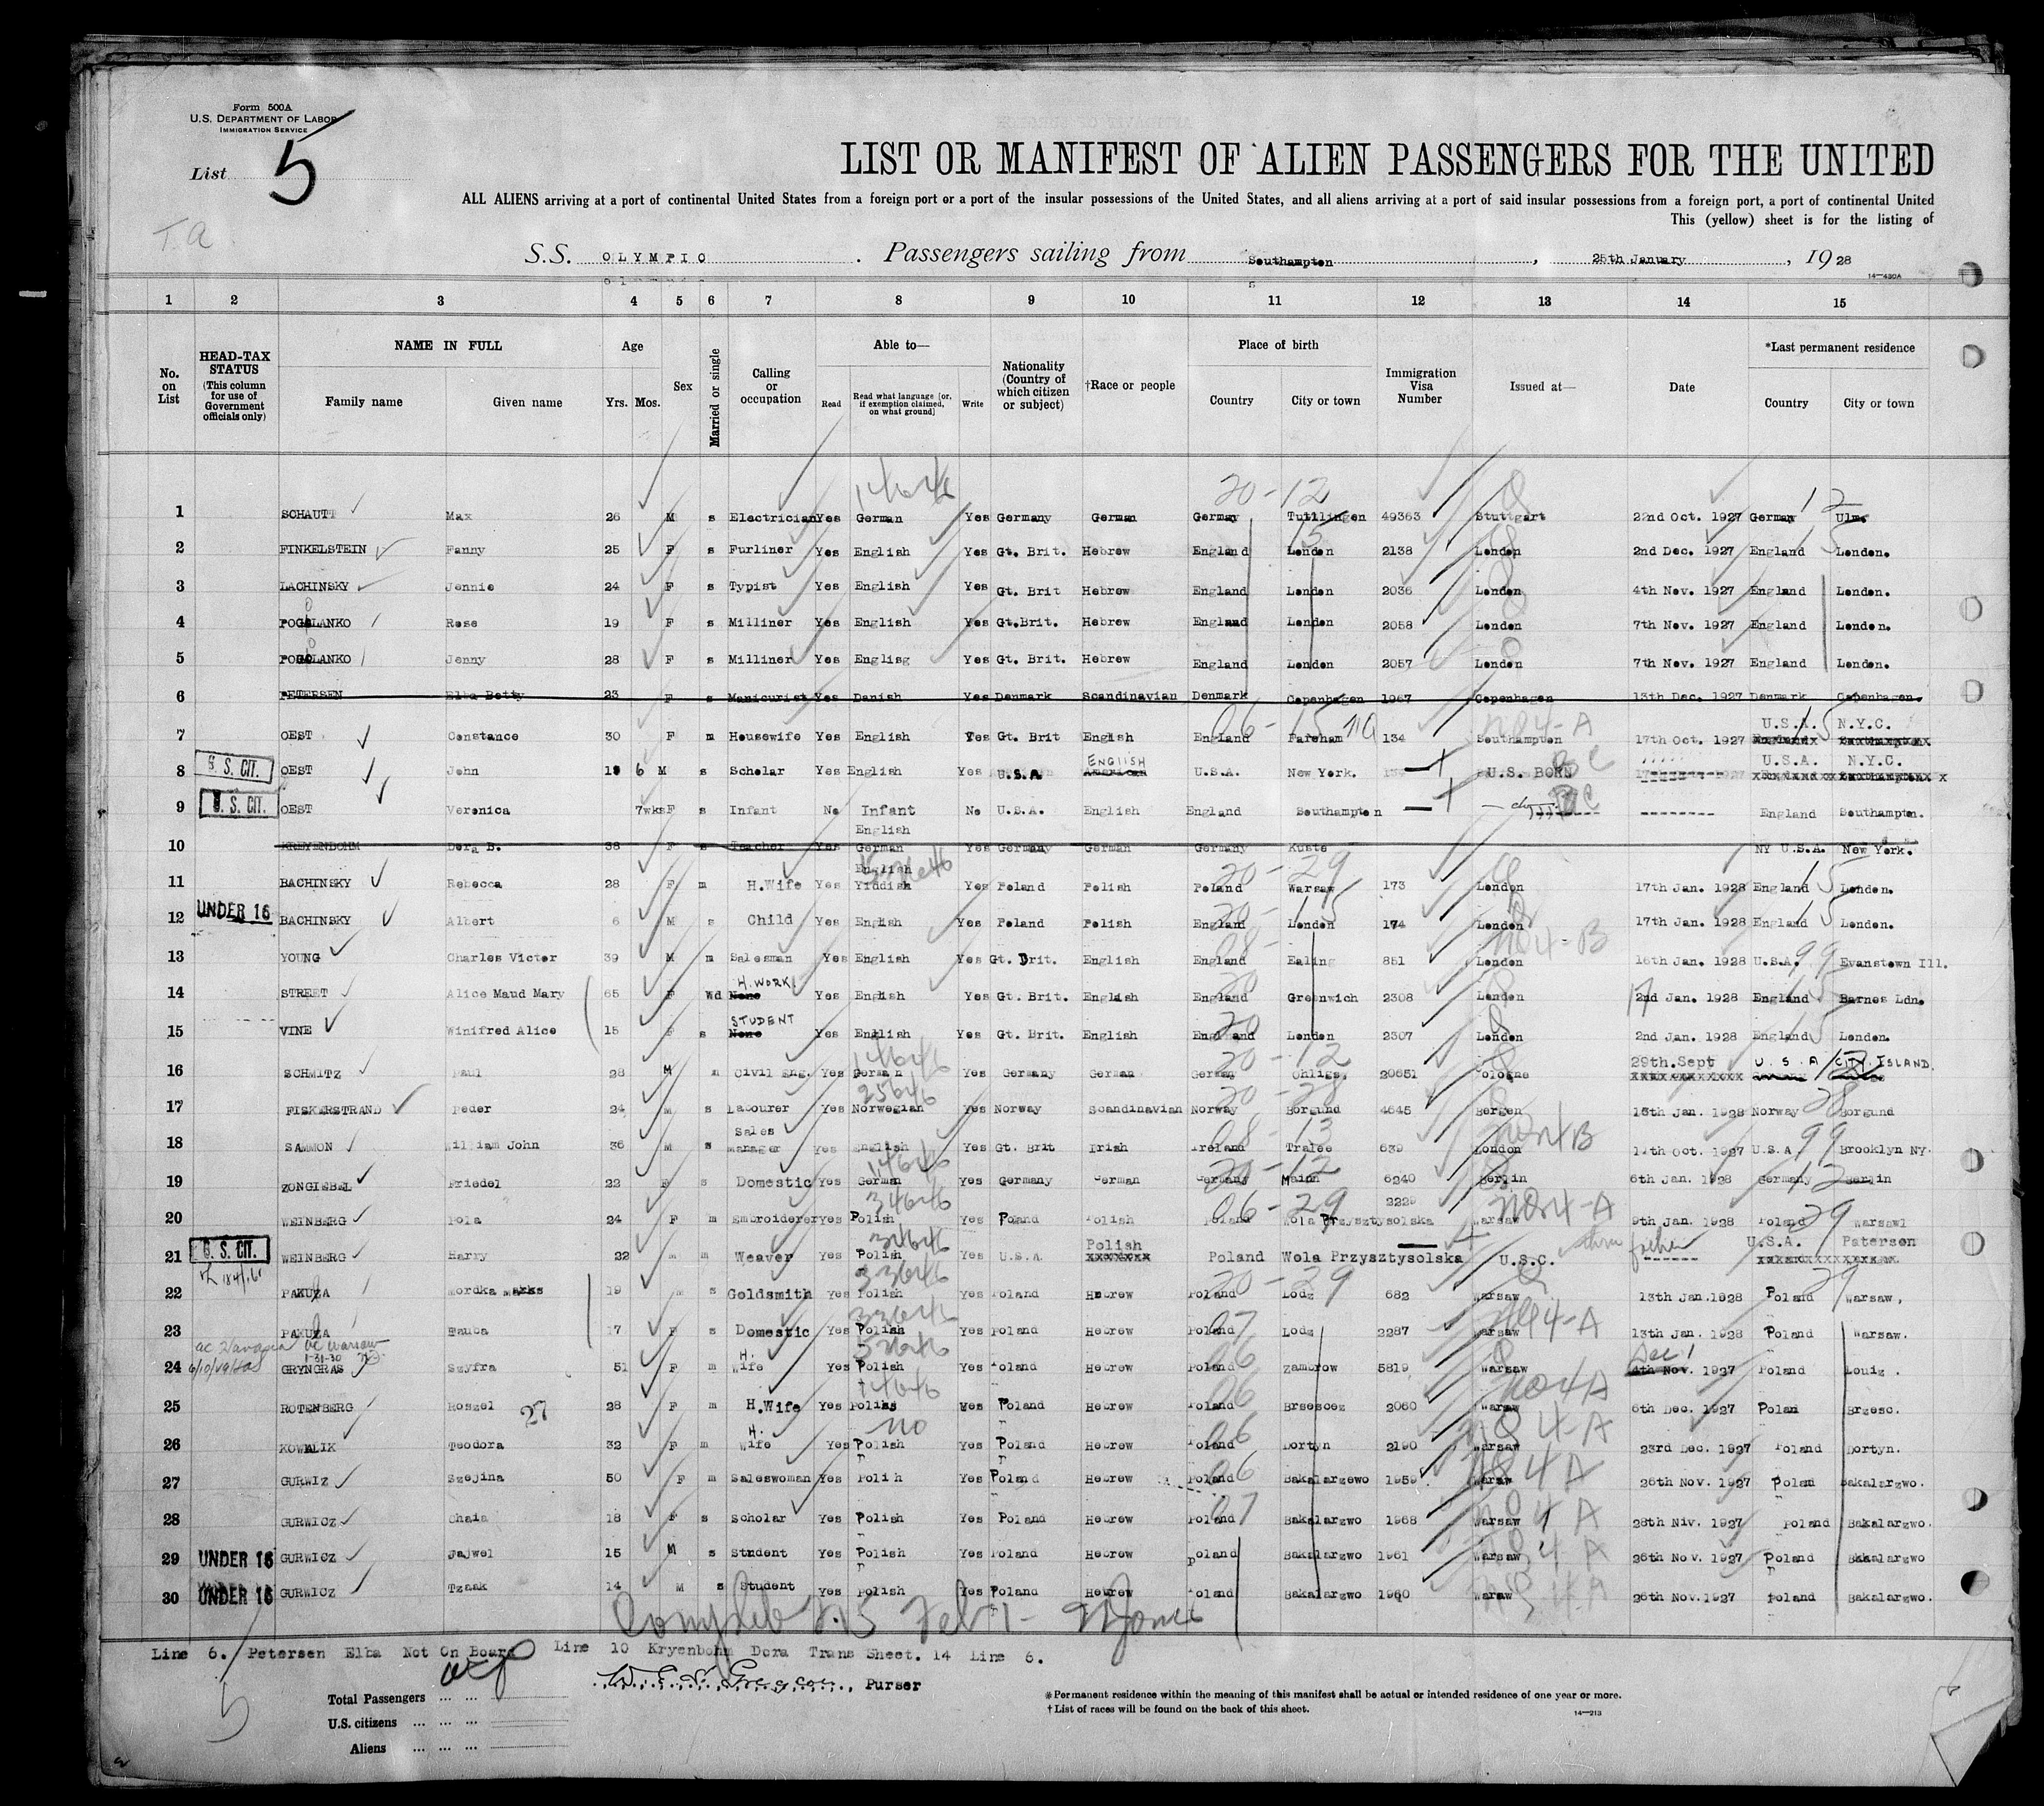 Form 500A
U.S. DEPARTMENT OF LABOR
IMMIGRATION SERVICE
List 5
T.a
LIST OR MANIFEST OF ALIEN PASSENGERS FOR THE UNITED
ALL ALIENS arriving at a port of continental United States from a foreign port or a port of the insular possessions of the United States, and all aliens arriving at a port of said insular possessions from a foreign port, a port of continental United
This (yellow) sheet is for the listing of
S.S. OLYMPIC . Passengers sailing from Southampton , 25th January , 1928
14—430A
1 2 3 4 5 6 7 8 9 10 11 12 13 14 15
No. on List
HEAD-TAX STATUS (This column for use of Government officials only)
NAME IN FULL Family name Given name
Age Yrs. Mos.
Sex
Married or single
Calling or occupation
Able to— Read Read what language [or, if exemption claimed, on what ground] Write
Nationality (Country of which citizen or subject)
†Race or people
Place of birth Country City or town
Immigration Visa Number
Issued at—
Date
*Last permanent residence Country City or town
1 SCHAUTT Max 26 M s Electrician Yes German Yes Germany German Germay Tuttlingen 49363 Stuttgart 22nd Oct. 1927 Germany Ulm.
2 FINKELSTEIN Fanny 25 F s Furliner Yes English Yes Gt. Brit. Hebrew England London 2138 London 2nd Dec. 1927 England London.
3 LACHINSKY Jennie 24 F s Typist Yes English Yes Gt. Brit Hebrew England London 2036 London 4th Nov. 1927 England London.
4 POGOLANKO Rose 19 F s Milliner Yes English Yes Gt.Brit. Hebrew England London 2058 London 7th Nov. 1927 England London.
5 POGOLANKO Jenny 28 F s Milliner Yes Englisg Yes Gt. Brit. Hebrew England London 2057 London 7th Nov. 1927 England London.
6 PETERSEN Elba Betty 23 F s Manicurist Yes Danish Yes Denmark Scandinavian Denmark Copenhagen 1967 Copenhagen 13th Dec. 1927 Denmark Copenhagen.
7 OEST Constance 30 F m Housewife Yes English Yes Gt. Brit English England Fareham 134 Southampton 17th Oct. 1927 U.S.A. N.Y.C.
8 U.S. CIT. OEST John 19 6 M s Scholar Yes English Yes U.S.A ENGLISH American U.S.A. New York. U.S. BORN BC U.S.A. N.Y.C.
9 U.S. CIT. OEST Veronica 7wks F s Infant No Infant No U.S.A. English England Southampton England Southampton.
10 KREYENBOHM Dora B. 38 F s Teacher Yes English German Yes Germany German Germany Kuste NY U.S.A. New York.
11 BACHINSKY Rebecca 28 F m H.Wife Yes English Yiddish Yes Poland Polish Poland Warsaw 173 London 17th Jan. 1928 England London.
12 UNDER 16 BACHINSKY Albert 6 M s Child Yes English Yes Poland Polish England London 174 London 17th Jan. 1928 England London.
13 YOUNG Charles Victor 39 M m Salesman Yes English Yes Gt. Brit. English England Ealing 851 London 16th Jan. 1928 U.S.A. Evanstown Ill.
14 STREET Alice Maud Mary 65 F Wd H.WORK None Yes English Yes Gt. Brit. English England Greenwich 2308 London 2nd Jan. 1928 England Barnes Ldn.
15 VINE Winifred Alice 15 F s STUDENT None Yes English Yes Gt. Brit. English England London 2307 London 2nd Jan. 1928 England London.
16 SCHMITZ Paul 28 M m Civil Eng. Yes German Yes Germany German Germany Ohligs. 20651 Cologne 29th.Sept U.S.A CITY ISLAND.
17 FISKERSTRAND Peder 24 M s Labourer Yes Norwegian Yes Norway Scandinavian Norway Borgund 4645 Bergen 13th Jan. 1928 Norway Borgund
18 SAMMON William John 36 M s Sales manager Yes English Yes Gt. Brit Irish Ireland Tralee 639 London 14th Oct. 1927 U.S.A Brooklyn NY.
19 ZONGIEBEL Friedel 22 F s Domestic Yes German Yes Germany German Germany 6240 Berlin 6th Jan. 1928 Germany Berlin
20 WEINBERG Pola 24 F m Embroiderer yes Polish Yes Poland Polish Poland Wola Przysztysolska 2229 Warsaw 9th Jan. 1928 Poland Warsawl
21 U.S. CIT. WEINBERG Harry 22 m m Weaver Yes Polish Yes U.S.A. Polish Poland Wola Przysztysolska U.S.C. thru father U.S.A. Paterson
22 PAKUZA Mordka Marks 19 m s Goldsmith Yes Polish Yes Poland Hebrew Poland Lodz 682 Warsaw 13th Jan.1928 Poland Warsaw,
23 PAKUZA Tauba 17 F s Domestic Yes Polish Yes Poland Hebrew Poland Lodz 2287 Warsaw 13th Jan. 1928 Poland Warsaw.
24 GRYNGRAS Szyfra 51 F m H. Wife Yes Polish Yes Poland Hebrew Poland Zambrow 5819 Warsaw Dec 1 4th Nov. 1927 Poland Louiz.
25 ROTENBERG Roszel 27 28 F m H.Wife Yes Polihs Yes Poland Hebrew Poland Brsescez 2060 Warsaw 6th Dec. 1927 Polan Brzesc.
26 KOWALIK Teodora 32 F m H. Wife Yes Polish Yes Poland Hebrew Poland Dortyn 2190 Warsaw 23rd Dec. 1927 Poland Dortyn.
27 GURWIZ Szejina 50 F m Saleswoman Yes Polih Yes Poland Hebrew Poland Bakalarzewo 1959 Warsaw 26th Nov. 1927 Poland Bakalarzwo.
28 GURWICZ Chaia 18 F s Scholar Yes Polish Yes Poland Hebrew Poland Bakalarzwo 1968 Warsaw 28th Niv. 1927 Poland Bakalarzwo.
29 UNDER 16 GURWICZ Jajwel 15 M s Student Yes Polish Yes Poland Hebrew Poland Bakalarzwo 1961 Warsaw 26th Nov. 1927 Poland Bakalarzwo
30 UNDER 16 GURWICZ Tzaak 14 M s Student Yes Polish Yes Poland Hebrew Poland Bakalarzwo 1960 Waraw 26th Nov.1927 Poland Bakalarzwo.
Line 6. Petersen Elba Not On Board Line 10 Kryenbohm Dora Trans Sheet. 14 Line 6.
Purser
Total Passengers ... ...
U.S. citizens ... ... ...
Aliens ... ... ...
*Permanent residence within the meaning of this manifest shall be actual or intended residence of one year or more.
†List of races will be found on the back of this sheet.
14—213